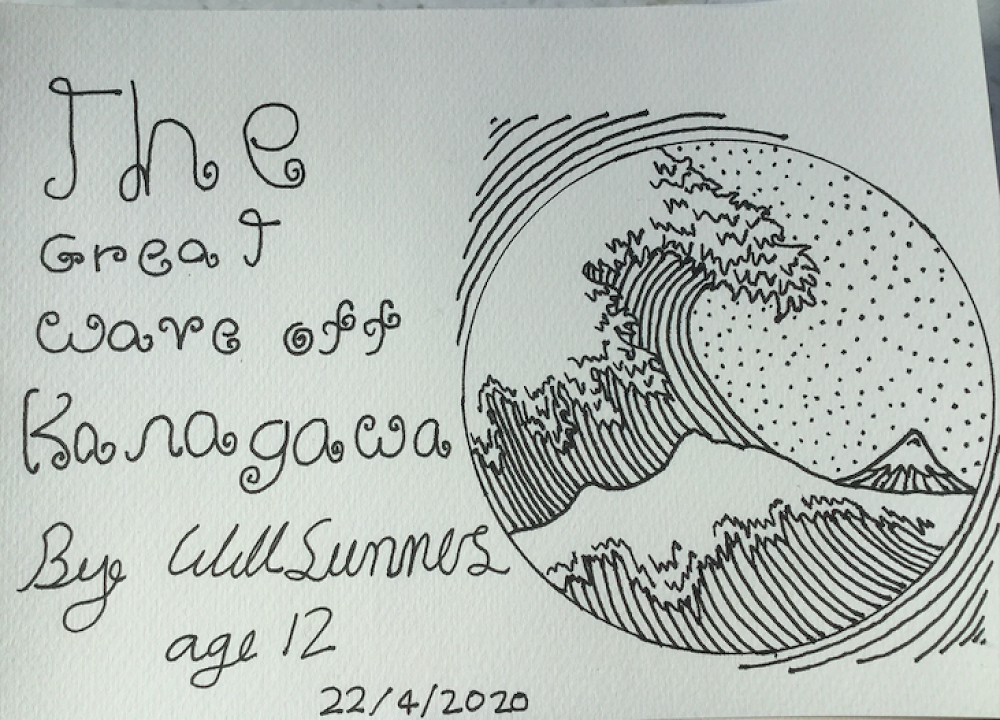 The
Great
wave off
Kanagawa
Bye Will Sumners
age 12
22/4/2020